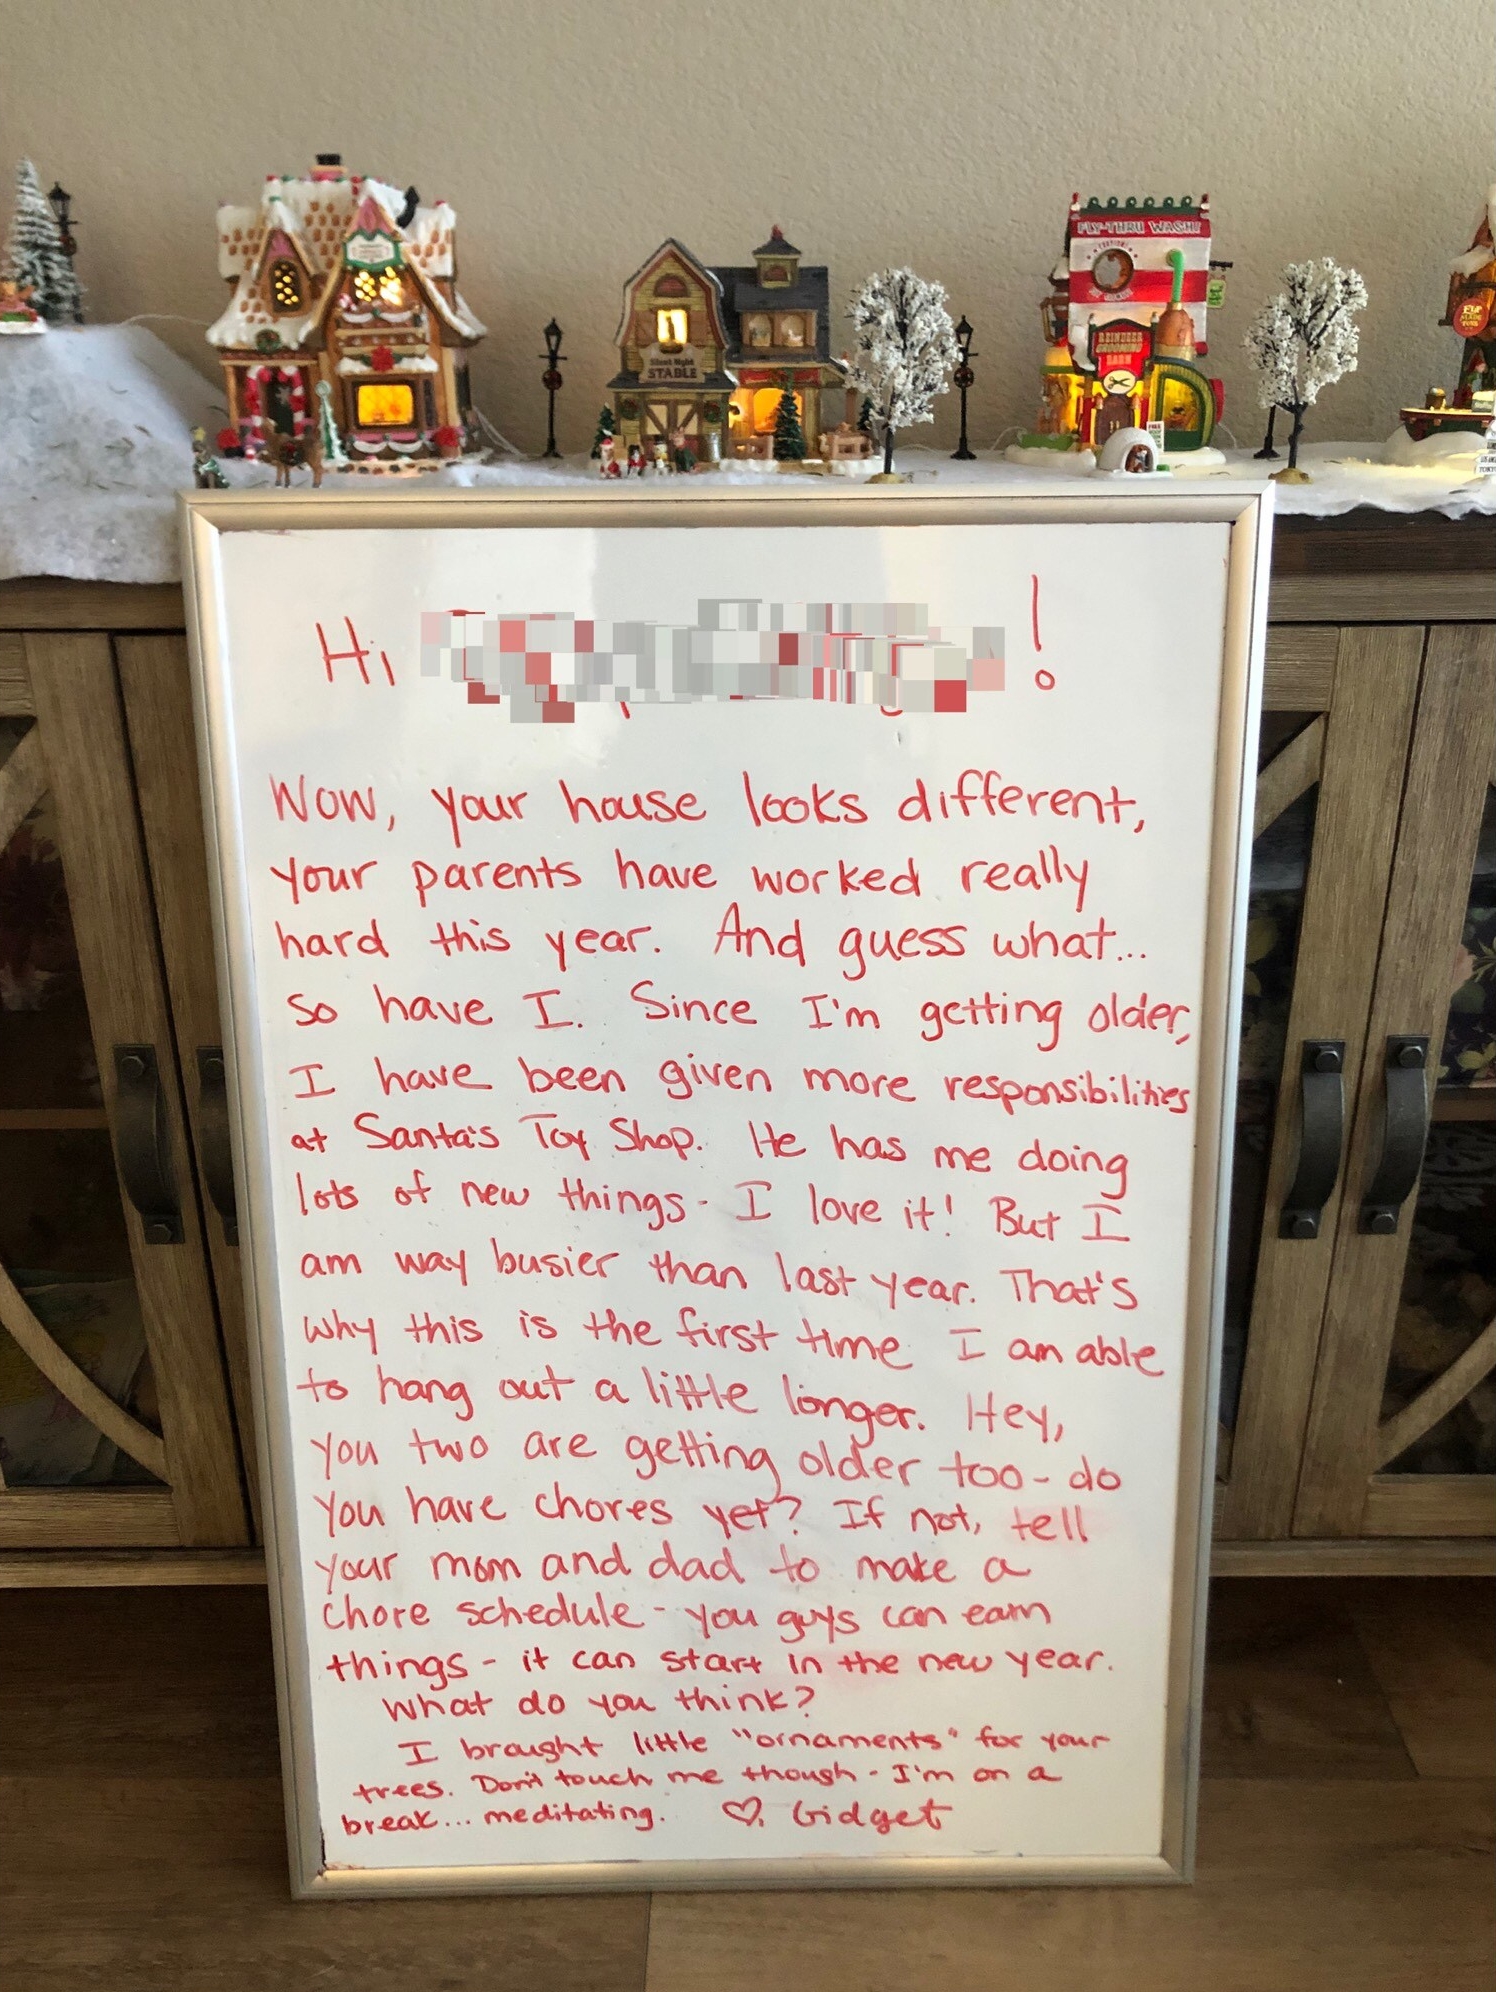 FLY-THRU WASH!
REINDEER
GROOMING
BARN
Silent Night
STABLE
ELF
Hi !
Wow, your house looks different,
your parents have worked really
hard this year. And guess what...
so have I. Since I'm getting older,
I have been given more responsibilities
at Santa's Toy Shop. He has me doing
lots of new things - I love it! But I
am way busier than last year. That's
why this is the first time I am able
to hang out a little longer. Hey,
you two are getting older too - do
you have chores yet? If not, tell
your mom and dad to make a
chore schedule - you guys can earn
things - it can start in the new year.
What do you think?
I brought little "ornaments" for your
trees. Don't touch me though - I'm on a
break... meditating. ♡, Gidget